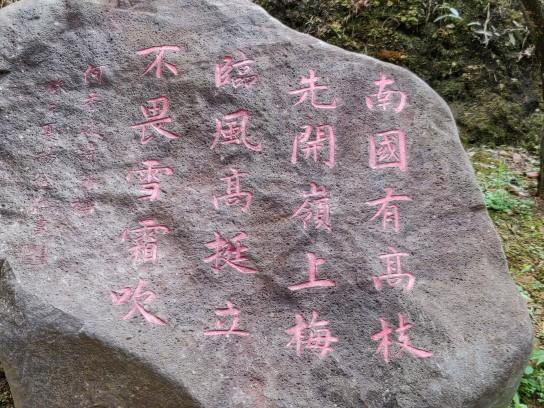 南國有高枝
先開嶺上梅
臨風高挺立
不畏雪霜吹